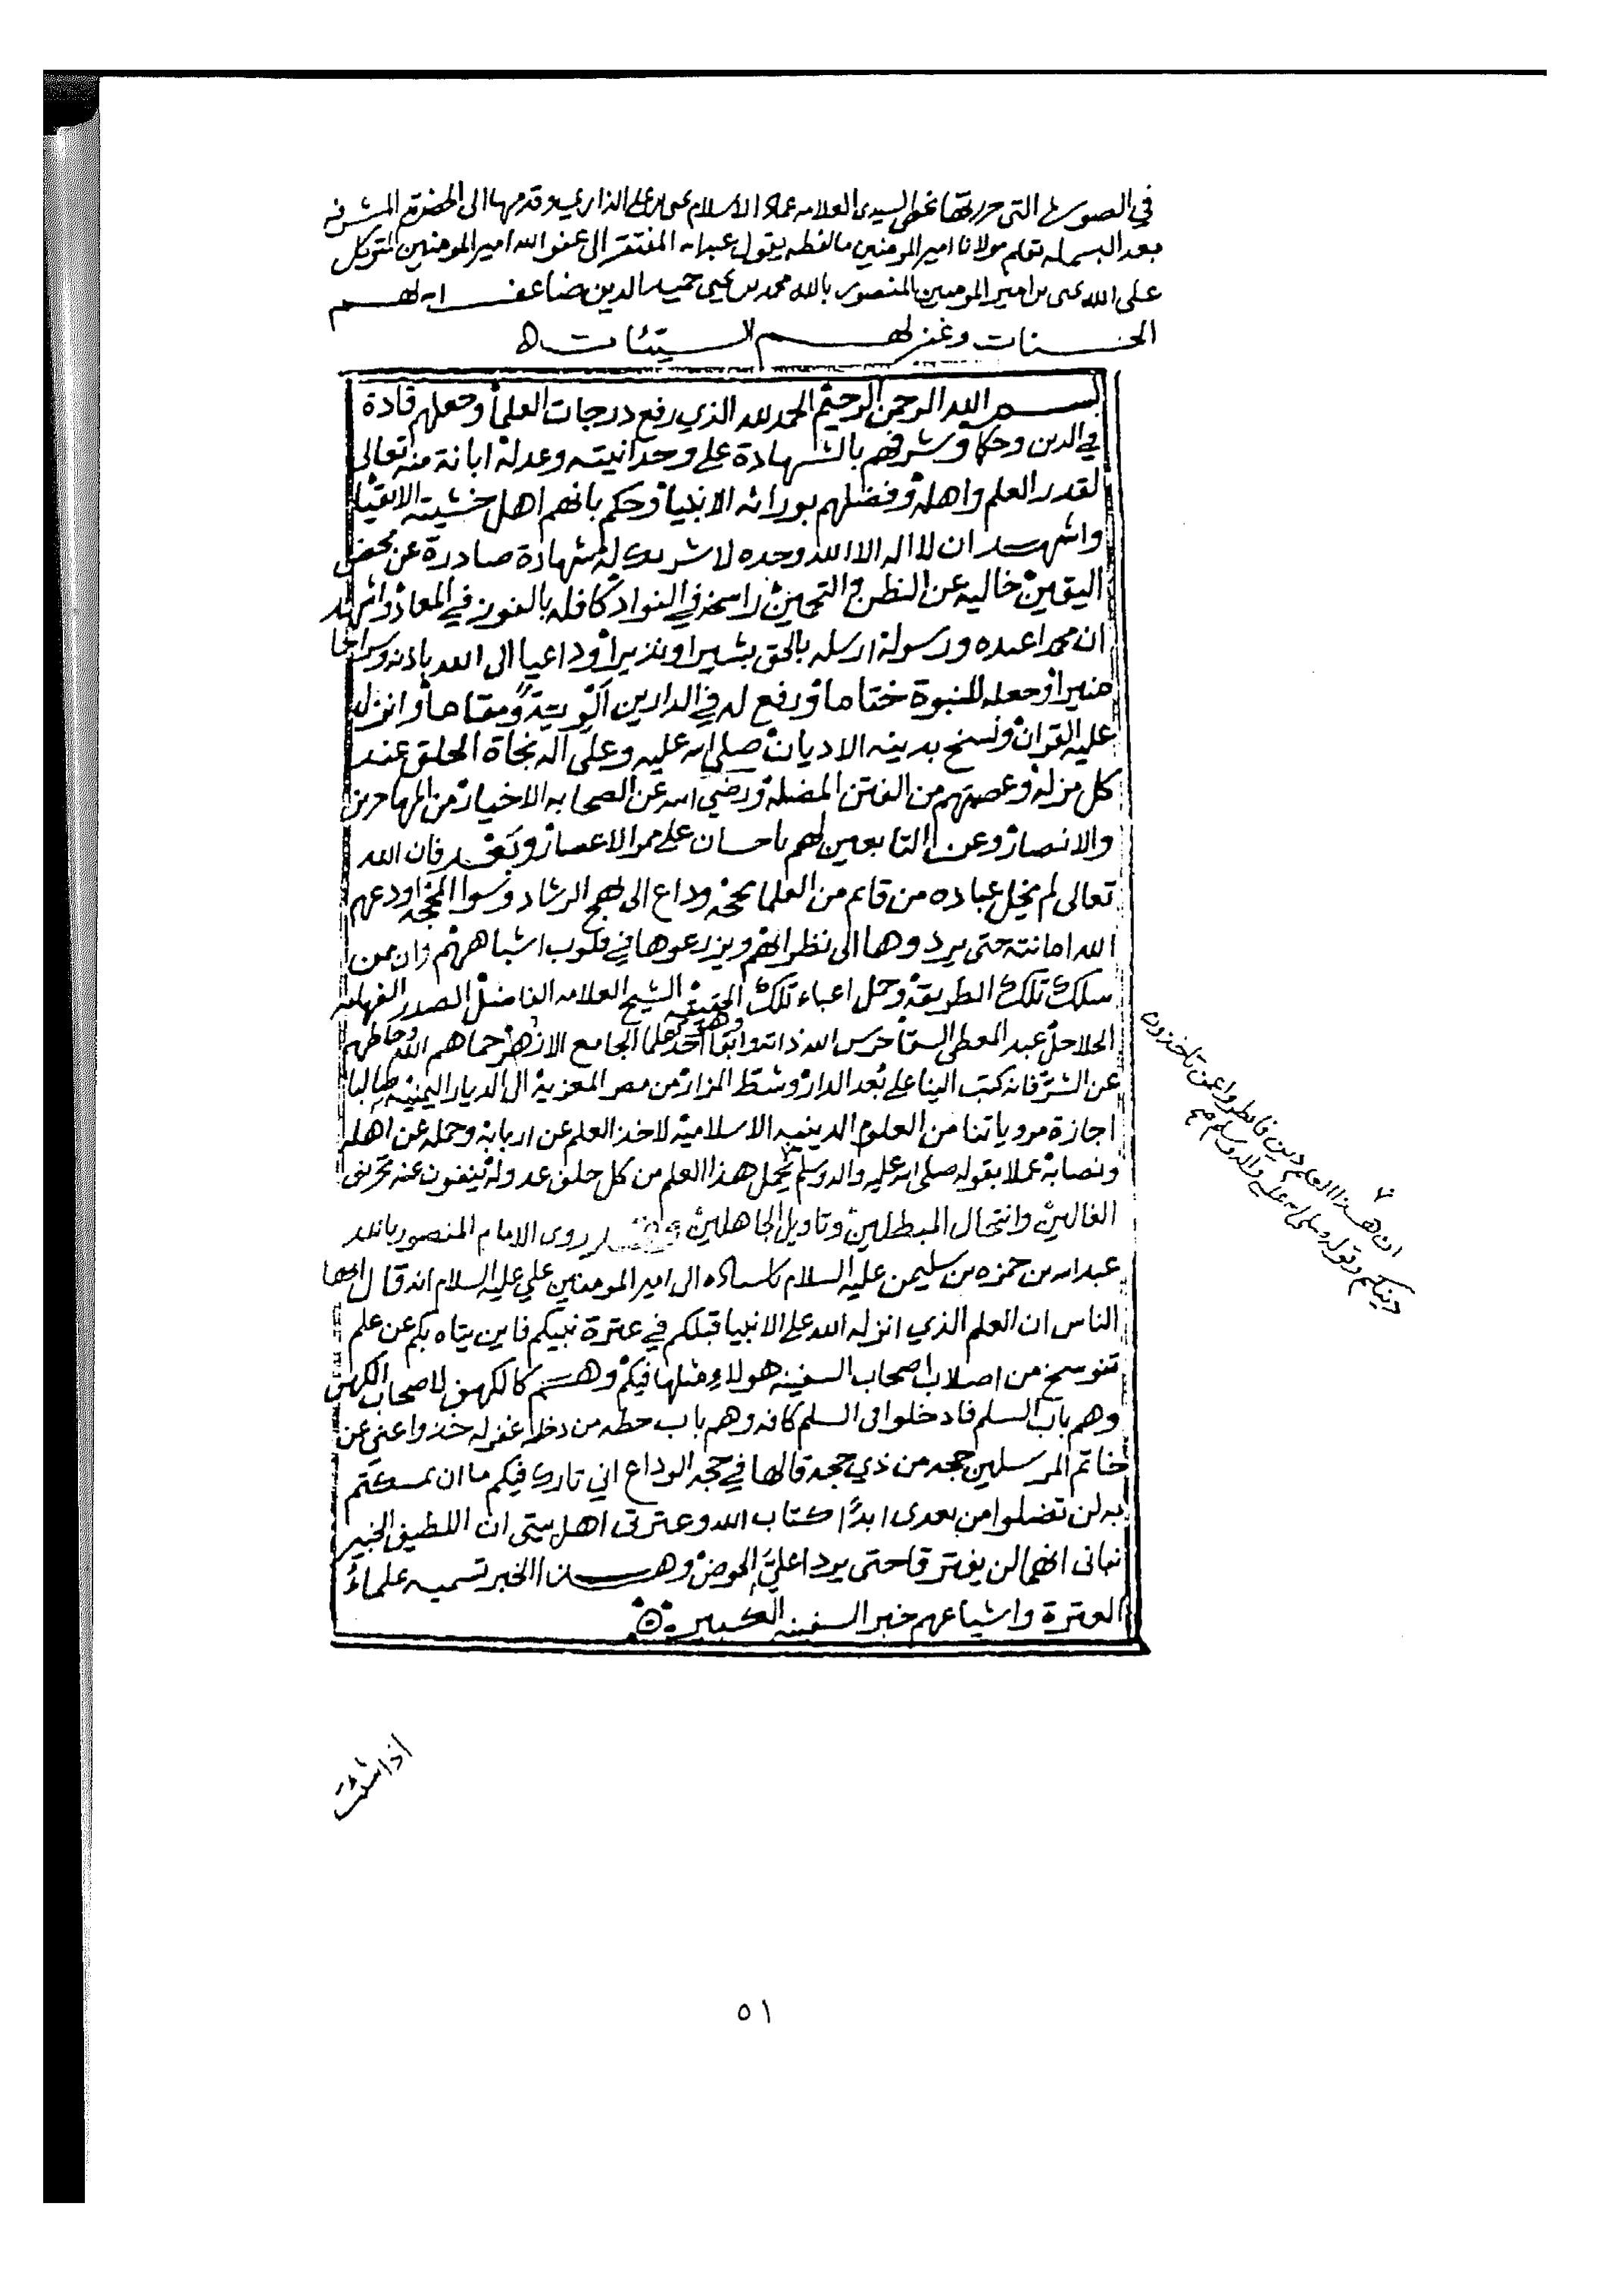 في الصورة التي حررتها بخط السيدي العلامه عماد الاسلام يحيى بن علي الذاري وقدمها الى الحضرة المشرفه
بعد البسمله بقلم مولانا امير المومنين مالفظه يقول عبد الله المفتقر الى عفو الله امير المومنين المتوكل
على الله يحيى بن امير المومنين المنصور بالله محمد بن يحيى حميد الدين ضاعف الله لهم
الحسنات وغفر لهم السيئات ه
بسم الله الرحمن الرحيم الحمد لله الذي رفع درجات العلما وجعلهم قادة
في الدين وحكما وشرفهم بالشهادة على وحدانيته وعدله ابانة منه تعالى
لقدر العلم واهله وفضلهم بوراثه الانبيا وحكم بانهم اهل خشيته الاتقيا
واشهد ان لا اله الا الله وحده لا شريك له شهادة صادرة عن محض
اليقين خاليه عن الظن والتخمين راسخة في الفواد كافله بالفوز في المعاد واشهد
ان محمدا عبده ورسوله ارسله بالحق بشيرا ونذيرا وداعيا الى الله باذنه وسراجا
منيرا وجعله للنبوة ختاما ورفع له في الدارين ومقاما وانزل
عليه القران ونسخ بدينه الاديان صلى الله عليه وعلى اله نجاة الخلق عند
كل مزلة وعصمتهم من الفتن المضله ورضي الله عن الصحابه الاخيار من المهاجرين
والانصار وعن التابعين لهم باحسان على ممر الاعصار وبعد فان الله
تعالى لم يخل عباده من قايم من العلما بحجه وداع الى نهج الرشاد وسوا المحجه اودعهم
الله امانته حتى يردوها الى نظرائهم ويزرعوها في قلوب اشباههم وان ممن
سلك تلك الطريقة وحمل اعباء تلك الحقيقه الشيخ العلامه الفاضل الصدر الفهامه
الحلاحل عبد المعطي السقا حرس الله ذاته وابقا وهو احد علما الجامع الازهر حماهم الله وحاطهم
عن الشر فانه كتب الينا على بعد الدار وشط المزار من مصر المعزية الى الديار اليمنيه طالبا
اجازة مروياتنا من العلوم الدينيه الاسلامية لاخذ العلم عن اربابه وحمله عن اهله
ونصابه عملا بقوله صلى الله عليه واله وسلم يحمل هذا العلم من كل خلف عدوله ينفون عنه تحريف
الغالين وانتحال المبطلين وتاويل الجاهلين وقد روى الامام المنصور بالله
عبد الله بن حمزه بن سليمن عليه السلام باسناده الى امير المومنين علي عليه السلام انه قال ايها
الناس ان العلم الذي انزله الله على الانبيا قبلكم في عترة نبيكم فاين يتاه بكم عن علم
تنوسخ من اصلاب اصحاب السفينه هولاء مثلها فيكم وهم كالكهف لاصحاب الكهف
وهم باب السلم فادخلوا في السلم كافه وهم باب حطه من دخله غفر له خذوا عني عن
خاتم المرسلين حجه من ذي حجة قالها في حجه الوداع اني تارك فيكم ما ان تمسكتم
به لن تضلوا من بعدى ابدا كتاب الله وعترتى اهل بيتي ان اللطيف الخبير
نباني انهما لن يفترقا حتى يردا علي الحوض وهذا الخبر تسميه علماء
العترة واشياعهم خبر السفينه الكبير ه
ان هذا العلم دين فانظروا عمن تاخذون
دينكم وقوله صلى الله عليه واله وسلم
اذا شئت
٥١